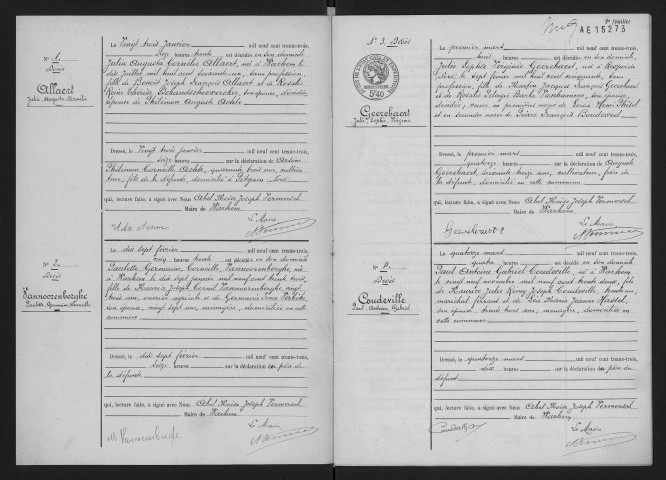 Nº 1.
Décès
Allaert
Julia, Augusta, Cornélie
Le Vingt trois Janvier mil neuf cent trente-trois,
seize heures trente est décédée en son domicile
Julia Augusta Cornélie Allaert, née à Warhem le
dix Juillet mil huit cent soixante-un, sans profession,
fille de Benoit Joseph François Allaert et de Rosalie
Reine Thérèse, son épouse, décédés,
épouse de Philémon Auguste Achte
Dressé, le Vingt trois janvier mil neuf cent trente-trois,
seize heures sur la déclaration de
Philémon Corneille Achte, quarante trois ans, cultiva-
teur, fils de la défunte, domicilié à
qui, lecture faite, a signé avec Nous Abel Moïse Joseph Vermersch
Maire de Warhem
Le Maire
Nº 2.
Décès
Vannoorenberghe
Paulette, Germaine, Corneille
Le dix sept février mil neuf cent trente-trois,
cinq heures trente est décédée en son domicile
Paulette Germaine Corneille Vannoorenberghe, née
à Warhem le dix sept janvier mil neuf cent trente trois,
fille de Maurice Joseph Cornil Vannoorenberghe, vingt
huit ans, ouvrier agricole et de Germaine
son épouse, vingt sept ans, ménagère, domiciliés en cette
commune
Dressé, le dix sept février mil neuf cent trente-trois,
seize heures sur la déclaration du père de
la défunte
qui, lecture faite, a signé avec Nous Abel Moïse Joseph Vermersch
Maire de Warhem
Le Maire
M Vannoorenberghe
2e feuillet
AE15273
Nº 3. Décès
5F40
Geerebaert
Julie, Sophie, Virginie
Le premier mars mil neuf cent trente-trois,
heures est décédée en son domicile,
Julie Sophie Virginie Geerebaert, née à
(Nord) le sept février mil huit cent cinquante, sans
profession, fille de Martin Jacques François Geerebaert
et de Rosalie Pélagie Barbe, son épouse,
décédés, veuve en premières noces de Louis Henri
et en secondes noces de Pierre François
Dressé, le premier mars mil neuf cent trente-trois,
quatorze heures sur la déclaration de Auguste
Geerebaert, soixante seize ans, cultivateur, frère de
la défunte domicilié en cette commune
qui, lecture faite, a signé avec Nous Abel Moïse Joseph Vermersch
Maire de Warhem
Le Maire
Geerebaert
Nº 4.
Décès
Coudeville
Paul, Antoine, Gabriel
Le quatorze mars mil neuf cent trente-trois,
quatre heures est décédé en son domicile
Paul Antoine Gabriel Coudeville, né à Warhem
le neuf novembre mil neuf cent trente deux, fils
de Maurice Jules Rémy Joseph Coudeville, trente ans,
maréchal ferrant et de Maria Jeanne
son épouse, trente trois ans, ménagère, domiciliés en
cette commune
Dressé, le quatorze mars mil neuf cent trente-trois,
dix heures sur la déclaration du père du
défunt
qui, lecture faite, a signé avec Nous Abel Moïse Joseph Vermersch
Maire de Warhem
Le Maire